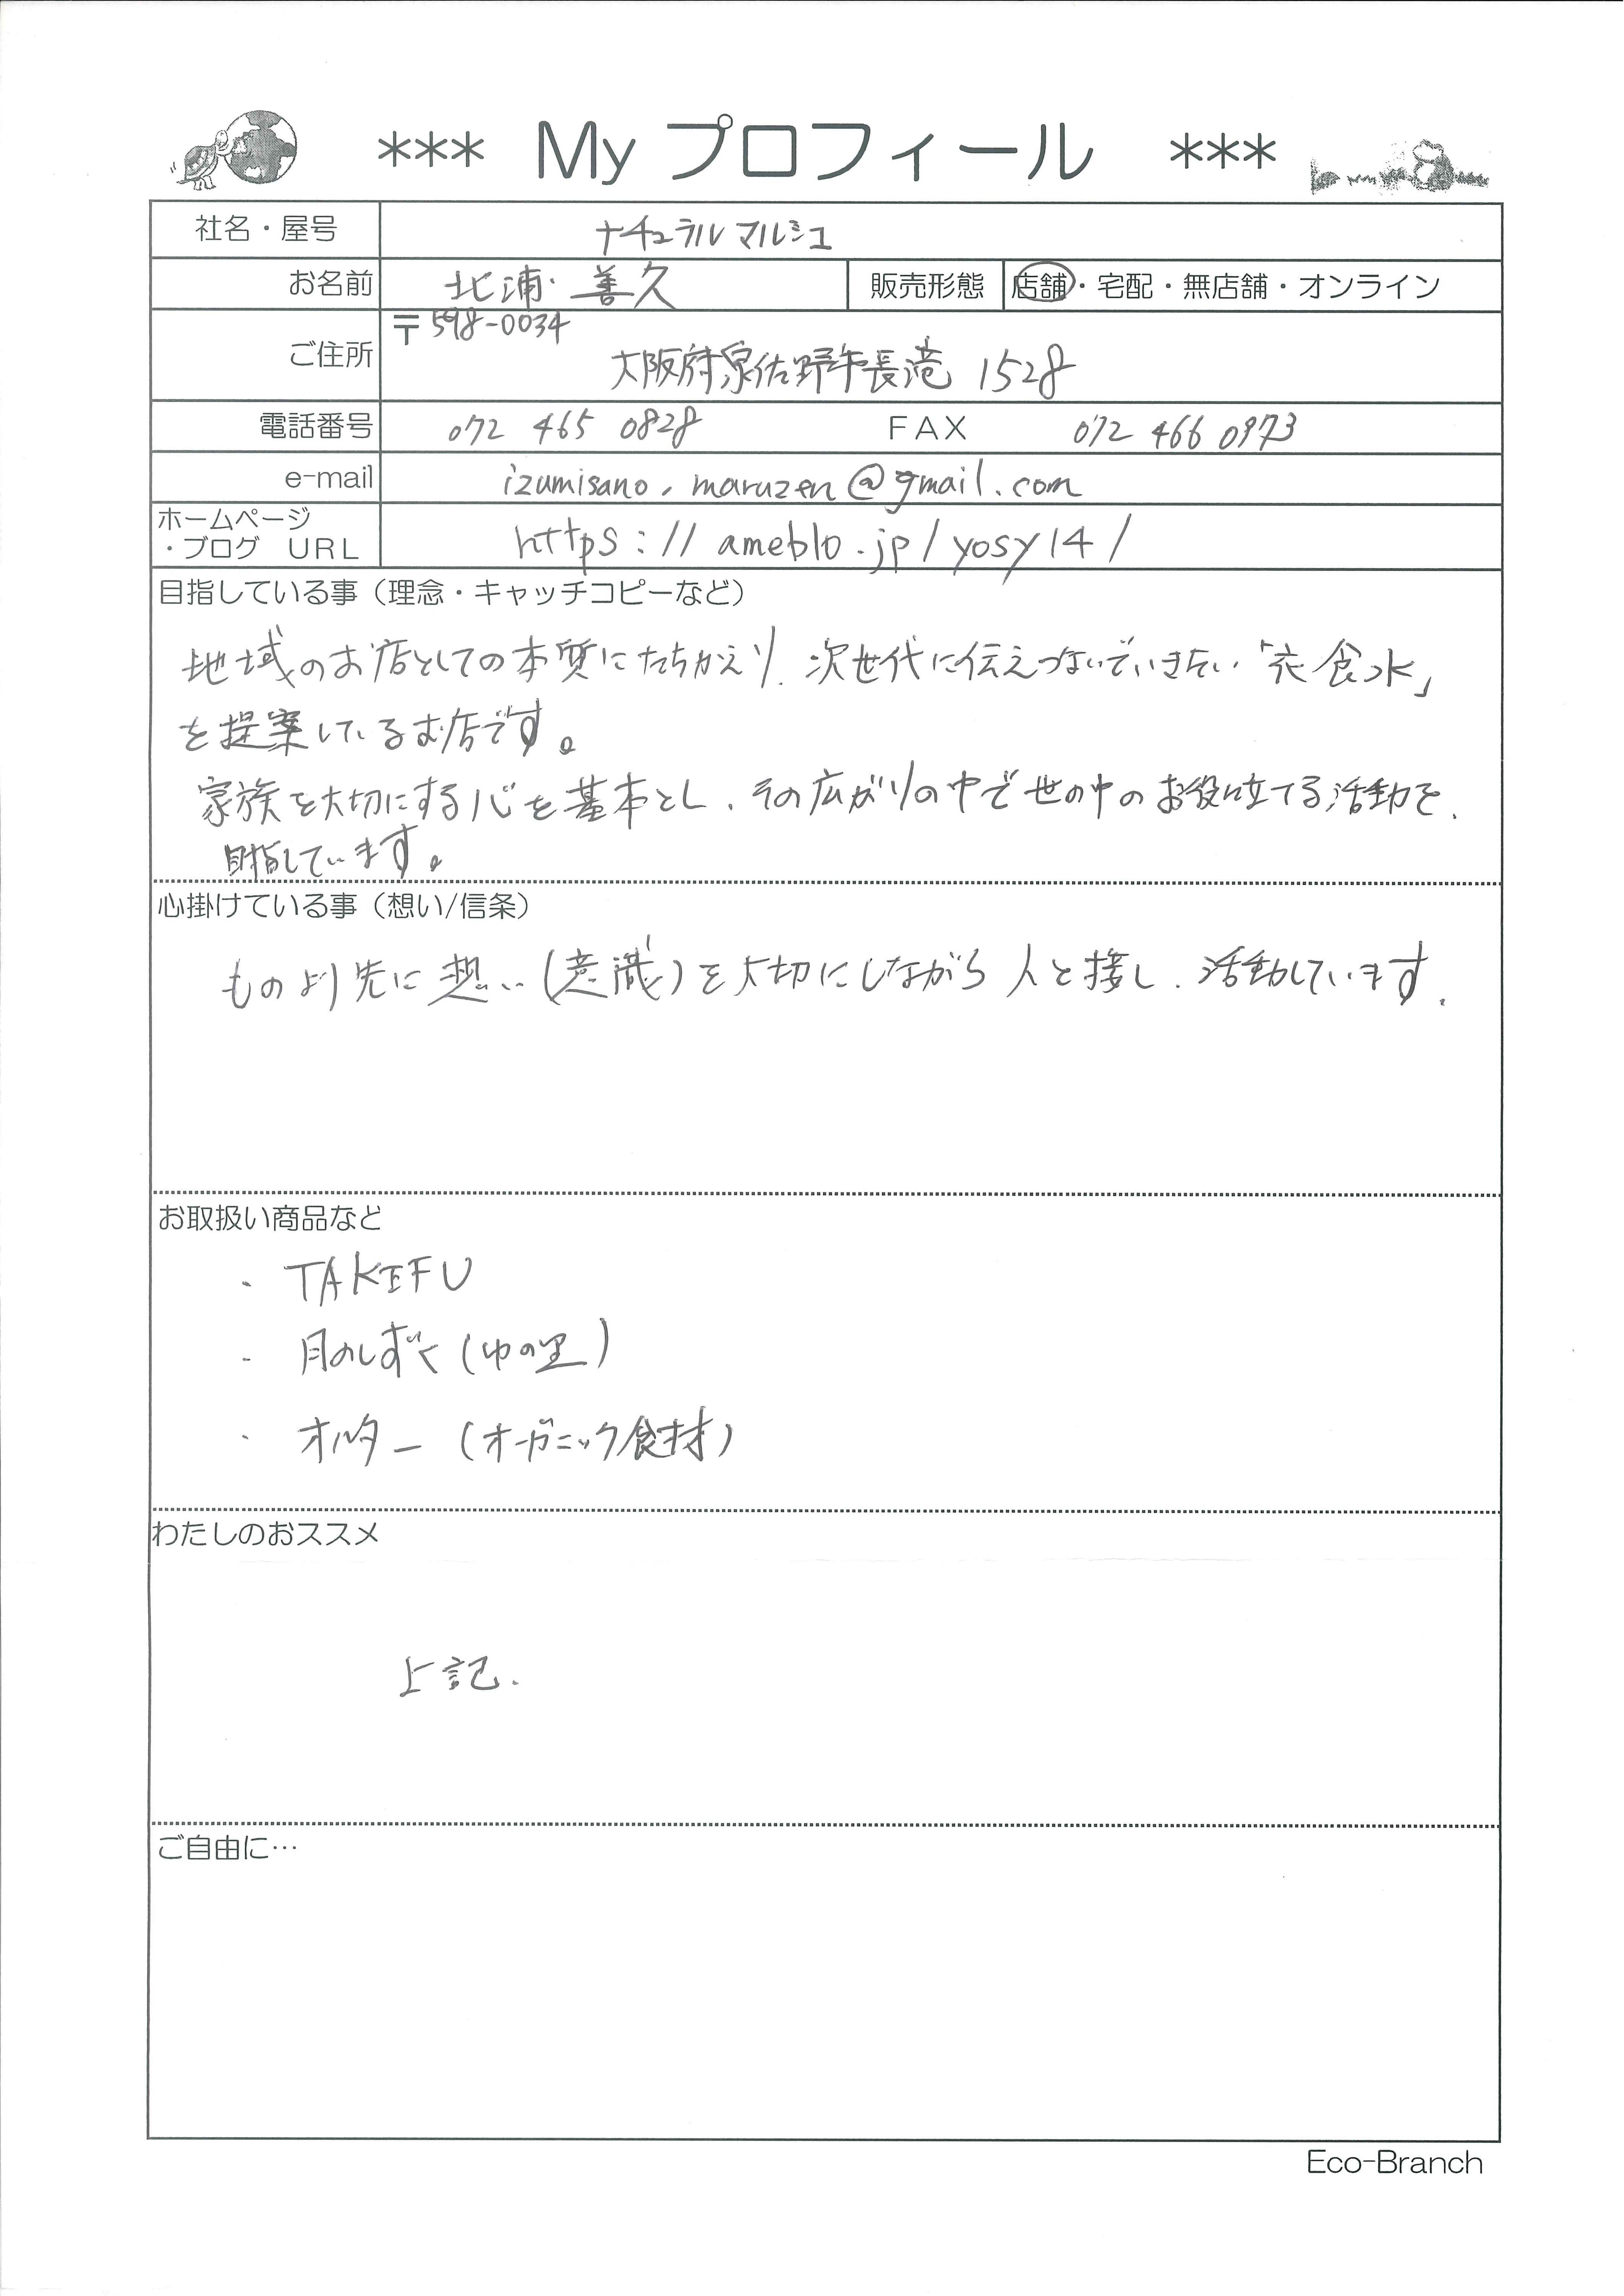 *** My プロフィール ***
社名・屋号 ナチュラルマルシェ
お名前 北浦 善久 販売形態 店舗・宅配・無店舗・オンライン
ご住所 〒598-0034
大阪府泉佐野市長滝 1528
電話番号 072 465 0828 FAX 072 466 0973
e-mail izumisano.maruzen@gmail.com
ホームページ
・ブログ URL https://ameblo.jp/yosy14/
目指している事（理念・キャッチコピーなど）
地域のお店としての本質にたちかえり、次世代に伝えつないでいきたい「衣食水」
を提案しているお店です。
家族を大切にする心を基本とし、その広がりの中で世の中のお役に立てる活動を、
目指しています。
心掛けている事（想い/信条）
ものより先に想い（意識）を大切にしながら人と接し、活動しています。
お取扱い商品など
・ TAKEFU
・ 月のしずく（ゆの里）
・ オルター（オーガニック食材）
わたしのおススメ
上記.
ご自由に…
Eco-Branch